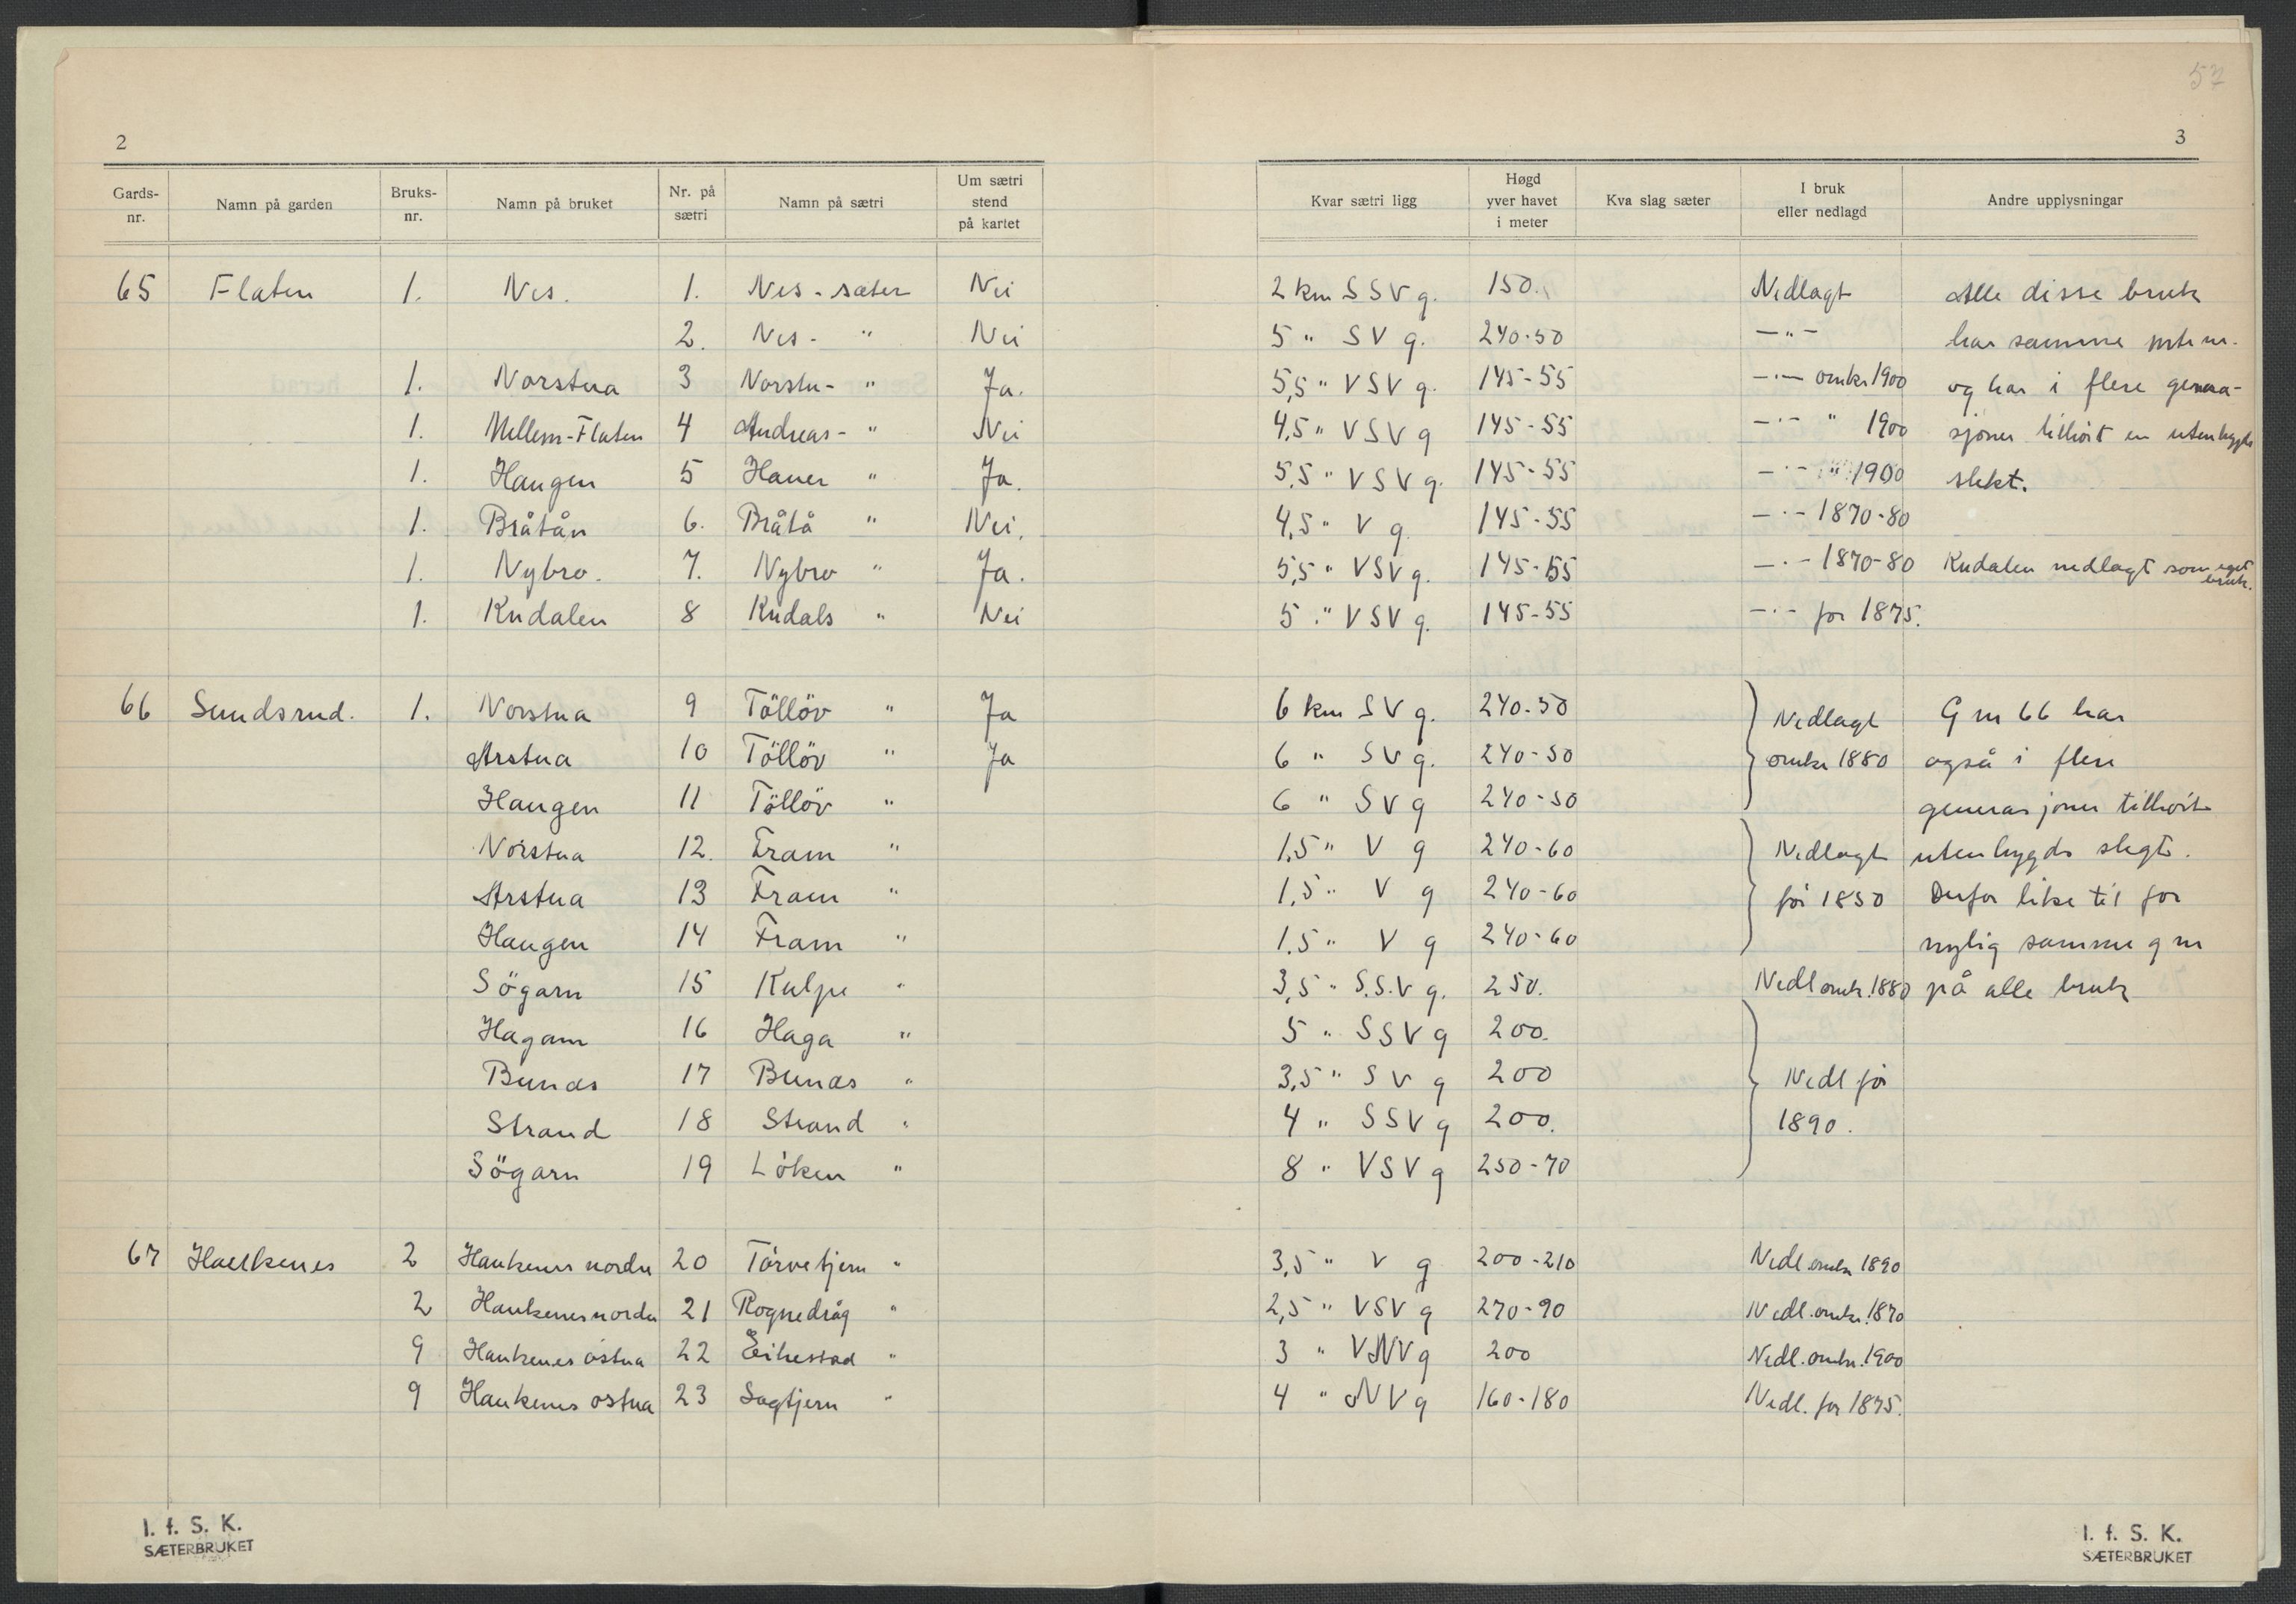 57
2
3
Gards-nr. Namn på garden Bruks-nr. Namn på bruket Nr. på sætri Namn på sætri Um sætri stend på kartet Kvar sætri ligg Høgd yver havet i meter Kva slag sæter I bruk eller nedlagd Andre upplysningar
65 Flaten 1. Nes. 1. Nes-sæter Nei 2 km SSV g. 150. Nedlagt Alle disse bruk
2. Nes- " Nei 5 " SV g. 240-50 —"— har samme mtr nr.
1. Norstua 3 Norstu- " Ja. 5,5 " VSV g. 145-55 —"— omkr 1900 og har i flere genera-
1. Mellem-Flaten 4 Andreas- " Nei 4,5 " VSV g 145-55 —"— " 1900 sjoner tilhört en utenbygds
1. Haugen 5 Hauer " Ja. 5,5 " VSV g. 145-55 —"— " 1900 slekt.
1. Bråtån 6. Bråtå " Nei. 4,5 " V g. 145-55 —"— 1870-80
1. Nybro. 7. Nybro " Ja. 5,5 " VSV g. 145-55 —"— 1870-80 Kudalen nedlagt som eget bruk.
1. Kudalen 8 Kudals " Nei 5 " VSV g. 145-55 —"— för 1875.
66 Sundsrud. 1. Norstua 9 Töllöv " Ja 6 km SV g. 240-50 Nedlagt G nr 66 har
Arstua 10 Töllöv " Ja 6 " SV g. 240-50 omkr 1880 også i flere
Haugen 11 Töllöv " 6 " SV g 240-50 generasjoner tilhört
Norstua 12. Fram " 1,5 " V g 240-60 Nedlagt utenbygds slegt.
Arstua 13 Fram " 1,5 " V g 240-60 för 1850 Derfor like til for
Haugen 14 Fram " 1.5 " V g 240-60 nylig samme g nr
Sögarn 15 Kulpe " 3,5 " S.S.V g. 250. Nedl omkr. 1880 på alle bruk
Hagam 16 Haga " 5 " SSV g 200.
Bunds 17 Bunds " 3,5 " SV g 200 Nedl för
Strand 18 Strand " 4 " SSV g 200. 1890.
Sögarn 19 Löken " 8 " VSV g 250-70
67 Haukenes 2 Haukenes nordre 20 Törvetjern " 3,5 " V g 200-210 Nedl. omkr 1890
2 Haukenes nordre 21 Rognedråg " 2,5 " VSV g 270-90 Nedl. omkr. 1870
9 Haukenes östua 22 Eikestad " 3 " VNV g 200 Nedl. omkr. 1900
9 Haukenes östua 23 Sagtjern " 4 " NV g 160-180 Nedl. för 1875.
I. f. S. K.
SÆTERBRUKET
I. f. S. K.
SÆTERBRUKET